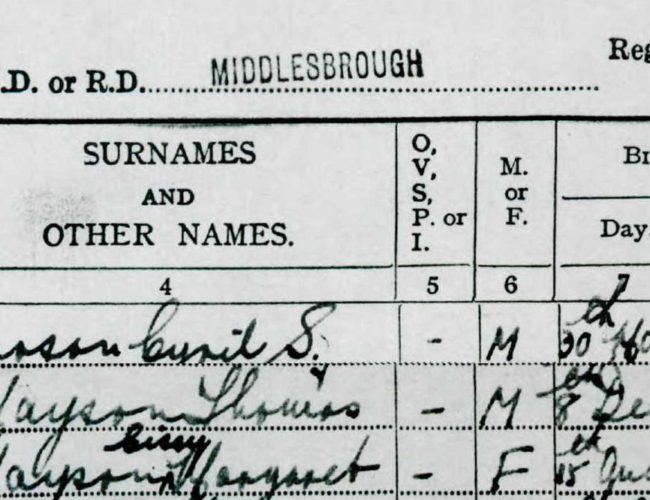 .D. or R.D. MIDDLESBROUGH Reg
SURNAMES AND OTHER NAMES.
O, V, S, P. or I.
M. or F.
Bi
Day
4 5 6 7
Cyril S. - M 30th
Thomas - M 8th De
Cissy
Margaret - F 15th Au